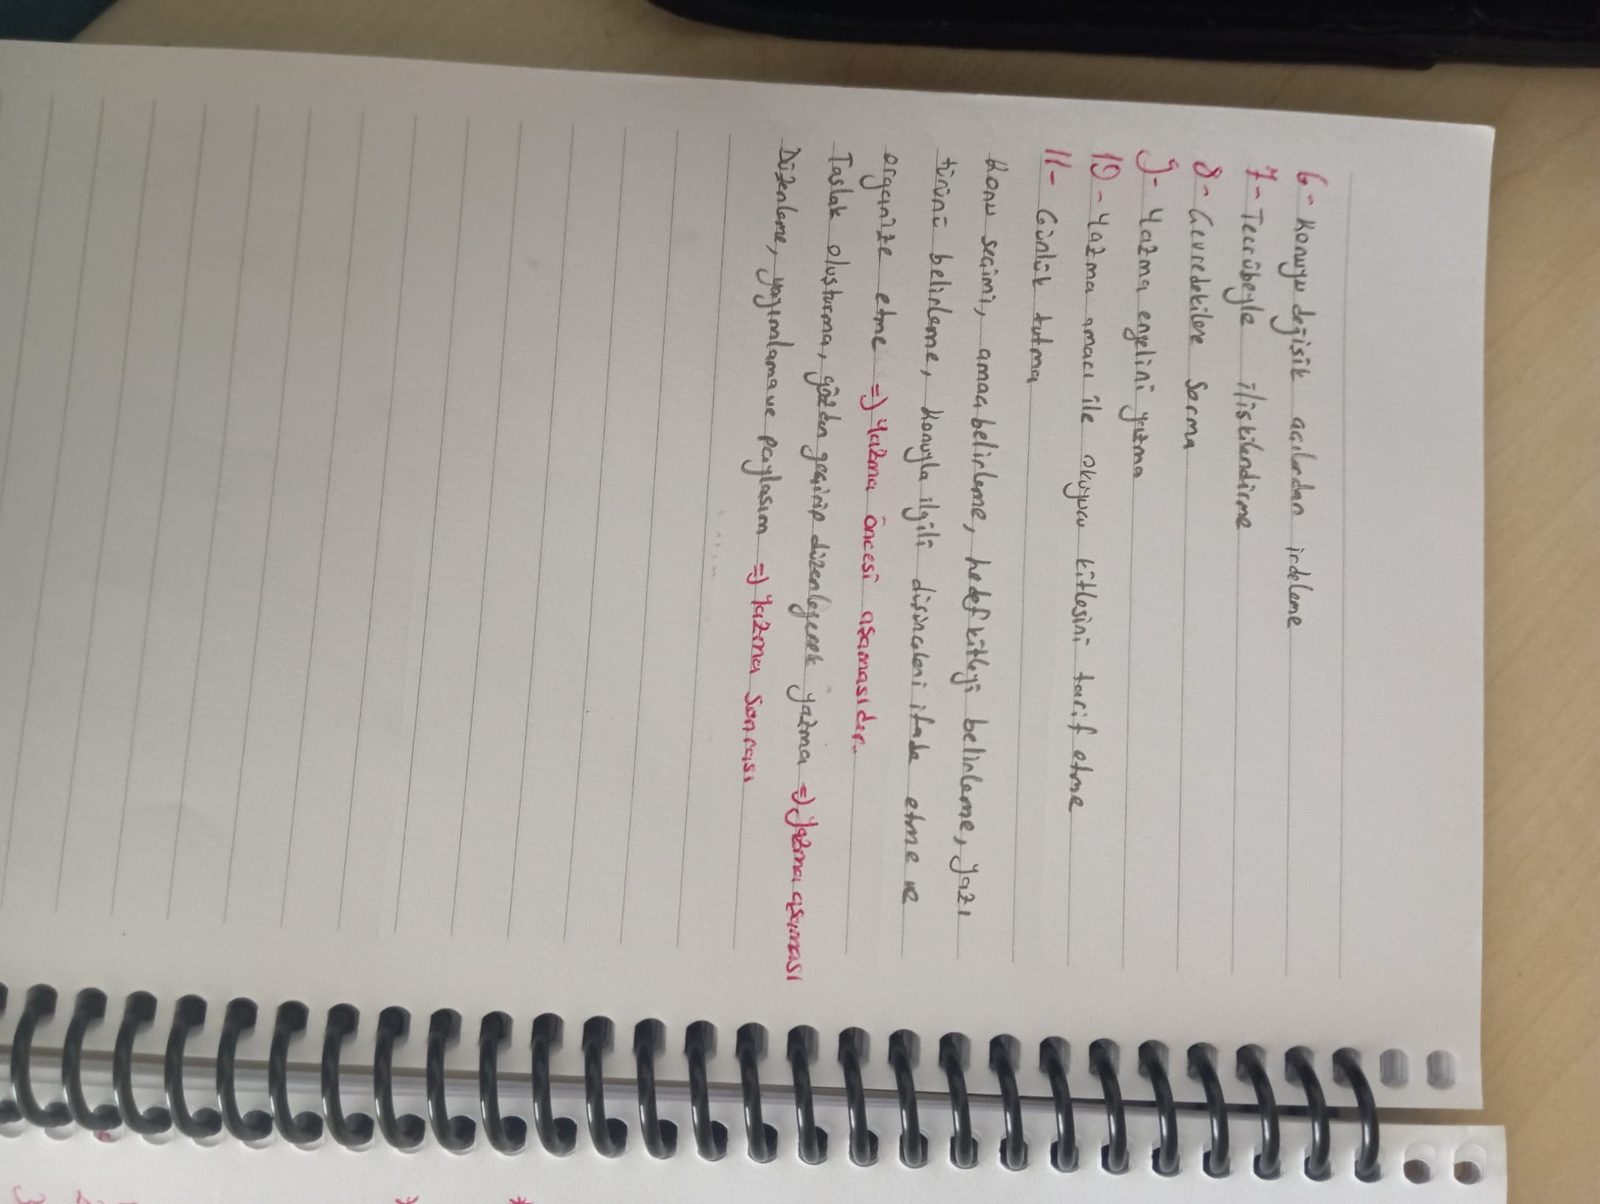 6- Konuyu değişik açılardan irdeleme
7- Tecrübeyle ilişkilendirme
8- Çevredekilere sorma
9- Yazma engelini yazma
10- Yazma amacı ile okuyucu kitlesini tarif etme
11- Günlük tutma
Konu seçimi, amaç belirleme, hedef kitleyi belirleme, yazı
türünü belirleme, konuyla ilgili düşünceleri ifade etme ve
organize etme => Yazma öncesi aşamasıdır.
Taslak oluşturma, gözden geçirip düzenleyerek yazma => yazma aşaması
Düzenleme, yayımlama ve paylaşım => Yazma sonrası